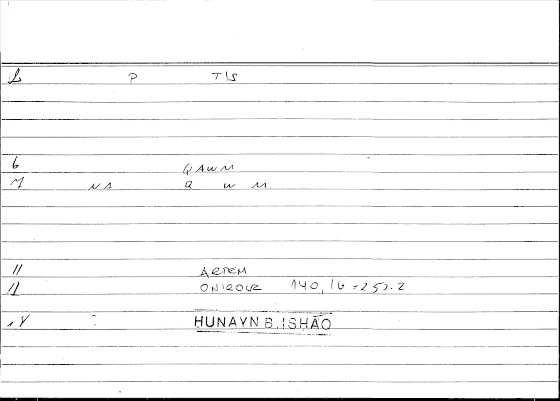 P TIS
6 QAWM
NA Q W M
11 ARTEM
ONIROCR 140,16 = 253.2
HUNAYN B. ISHĀQ